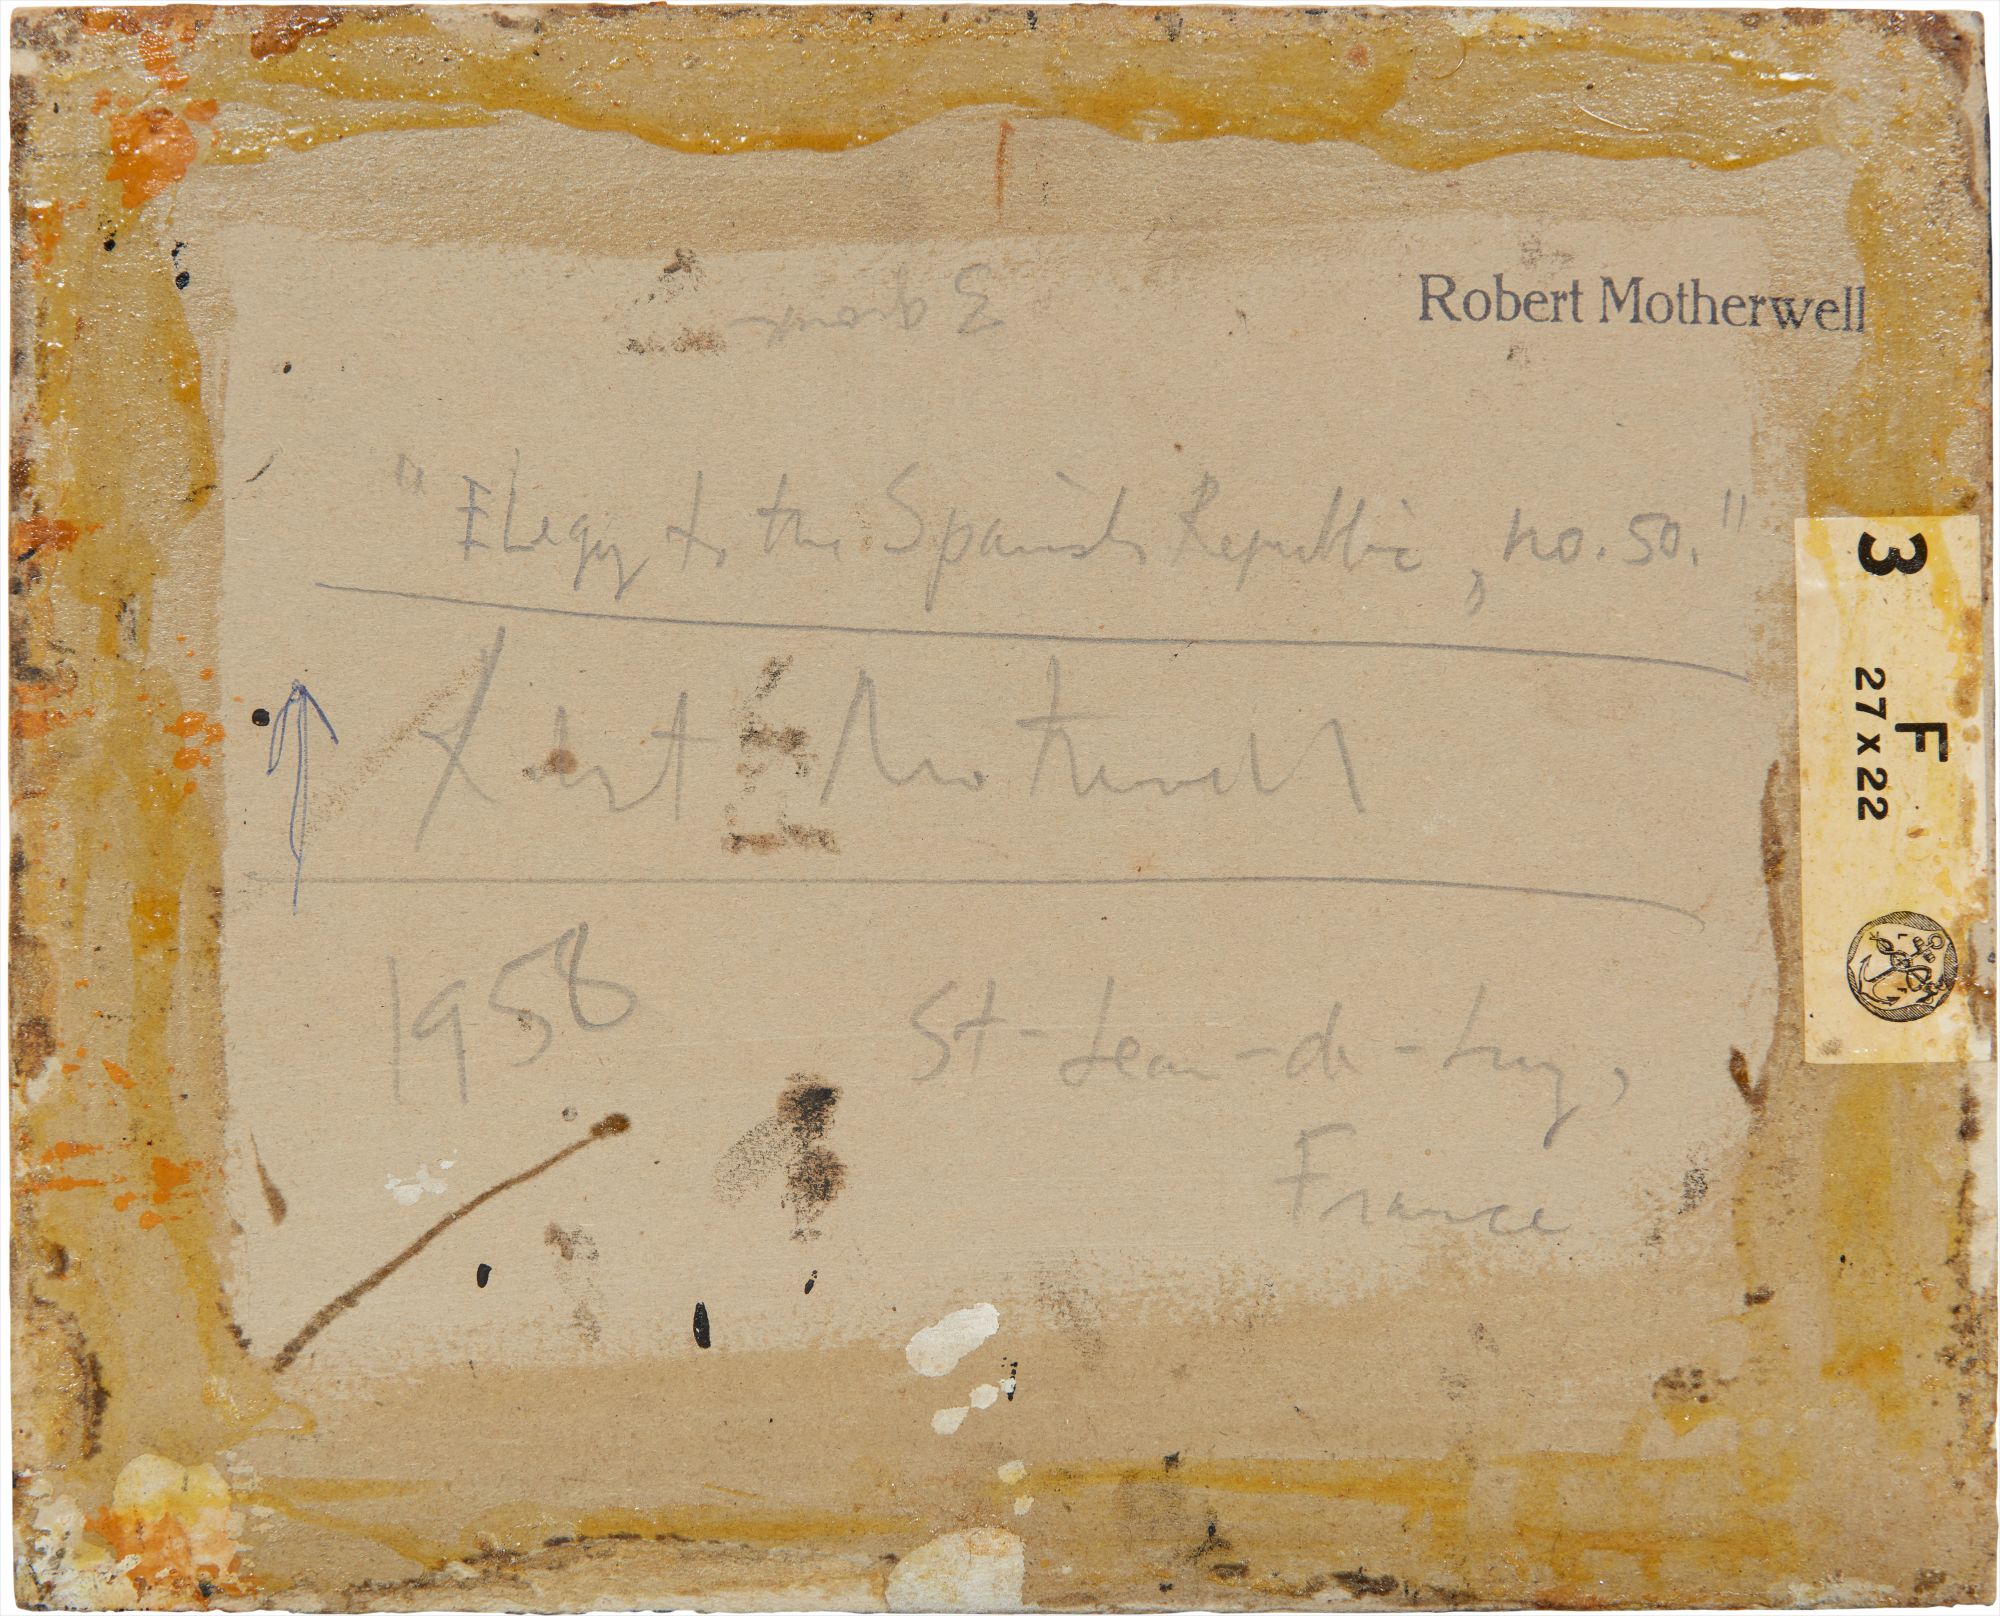 Robert Motherwell
"Elegy to the Spanish Republic, no. 50."
Robert Motherwell
1958 St-Jean-de-Luz,
France
3 F
27 x 22